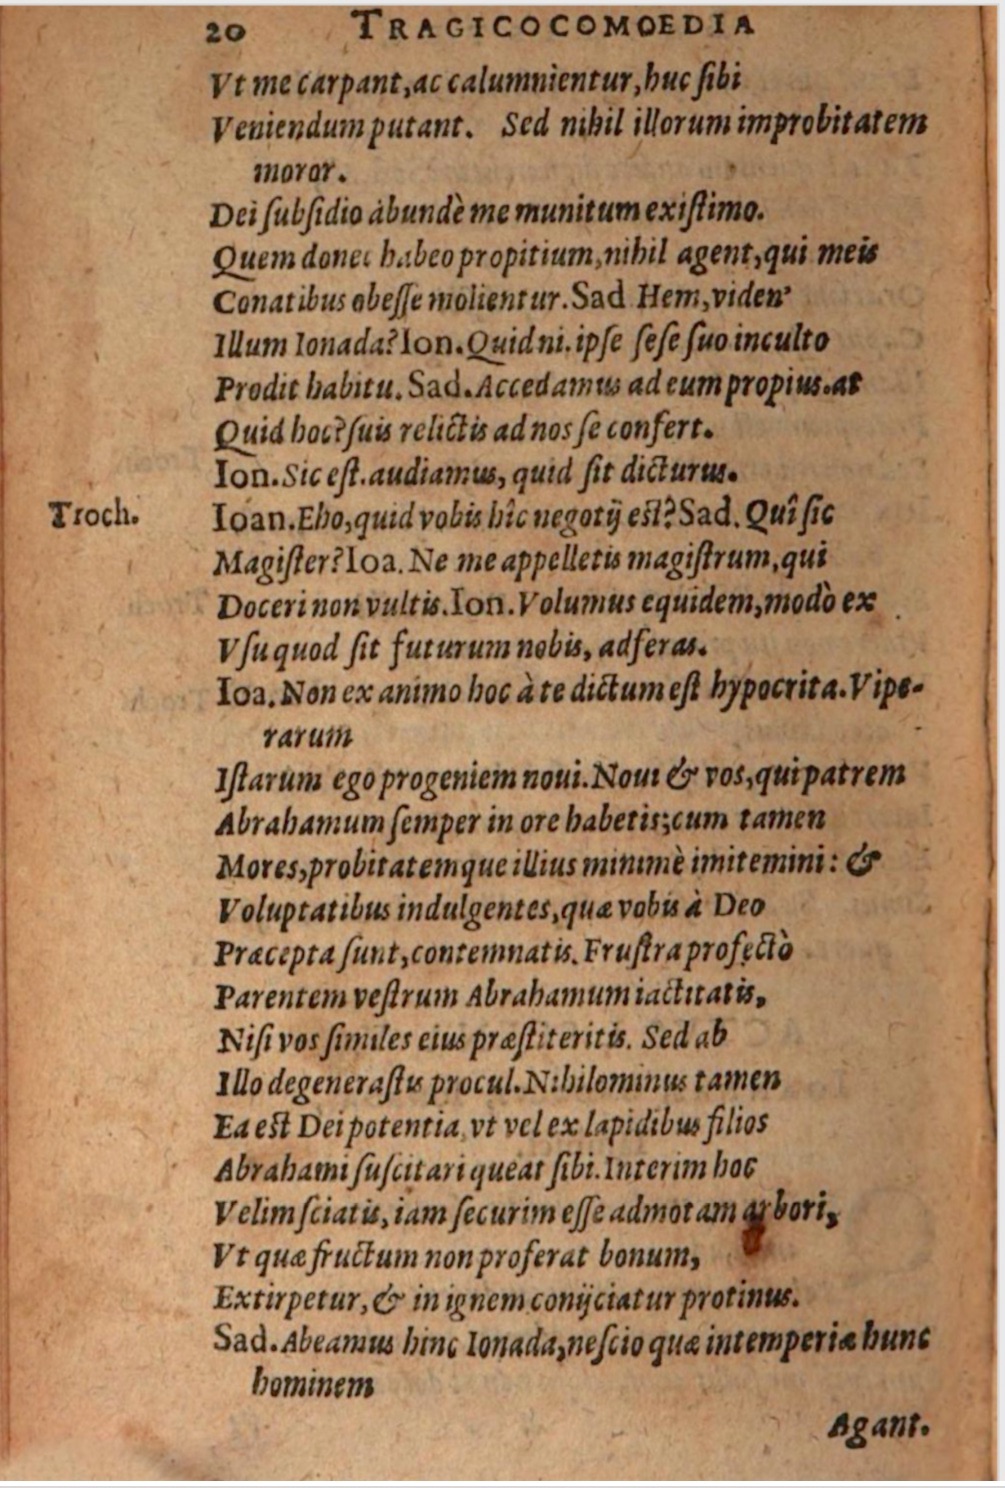 20 TRAGICOCOMOEDIA
Vt me carpant, ac calumnientur, huc ſibi
Veniendum putant. Sed nihil illorum improbitatem
moror.
Dei ſubſidio abundè me munitum exiſtimo.
Quem donec habeo propitium, nihil agent, qui meis
Conatibus obeſſe molientur. Sad Hem, viden'
Illum Ionada? Ion. Quidni. ipſe ſeſe ſuo inculto
Prodit habitu. Sad. Accedamus ad eum propius. at
Quid hoc? ſuis relictis ad nos ſe confert.
Ion. Sic eſt. audiamus, quid ſit dicturus.
Troch. Ioan. Eho, quid vobis hîc negotij eſt? Sad. Quî ſic
Magiſter? Ioa. Ne me appelletis magiſtrum, qui
Doceri non vultis. Ion. Volumus equidem, modò ex
Vſu quod ſit futurum nobis, adferas.
Ioa. Non ex animo hoc à te dictum eſt hypocrita. Vipe-
rarum
Iſtarum ego progeniem noui. Noui & vos, qui patrem
Abrahamum ſemper in ore habetis; cum tamen
Mores, probitatemque illius minimè imitemini: &
Voluptatibus indulgentes, quæ vobis à Deo
Præcepta ſunt, contemnatis. Fruſtra profectò
Parentem veſtrum Abrahamum iactitatis,
Niſi vos ſimiles eius præſtiteritis. Sed ab
Illo degeneraſtis procul. Nihilominus tamen
Ea eſt Dei potentia, vt vel ex lapidibus filios
Abrahami ſuſcitari queat ſibi. Interim hoc
Velim ſciatis, iam ſecurim eſſe admotam arbori,
Vt quæ fructum non proferat bonum,
Extirpetur, & in ignem conijciatur protinus.
Sad. Abeamus hinc Ionada, neſcio quæ intemperiæ hunc
hominem
Agant.